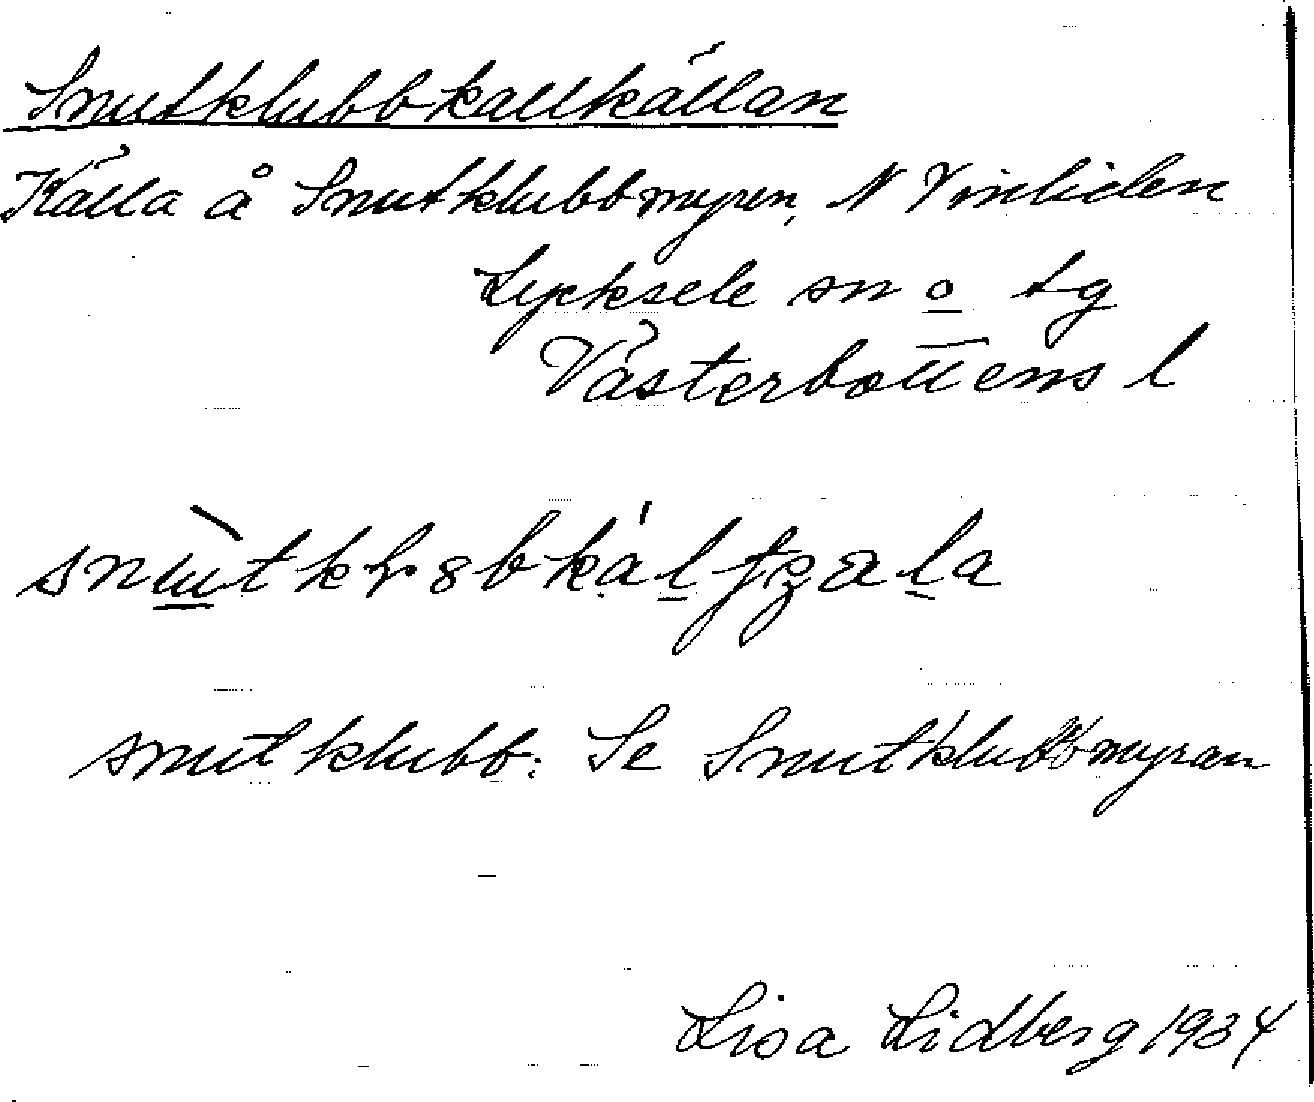 Snutklubbkallkällan
Källa å Snutklubbmyren, N Vinliden
Lycksele sn o tg
Västerbottens l
snutklubb: Se Snutklubbmyran
Lisa Lidberg 1934